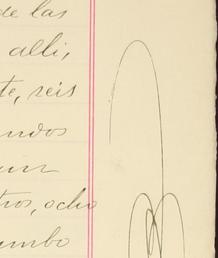 de las
alli,
te, seis
undos
un
tros, ocho
umbo